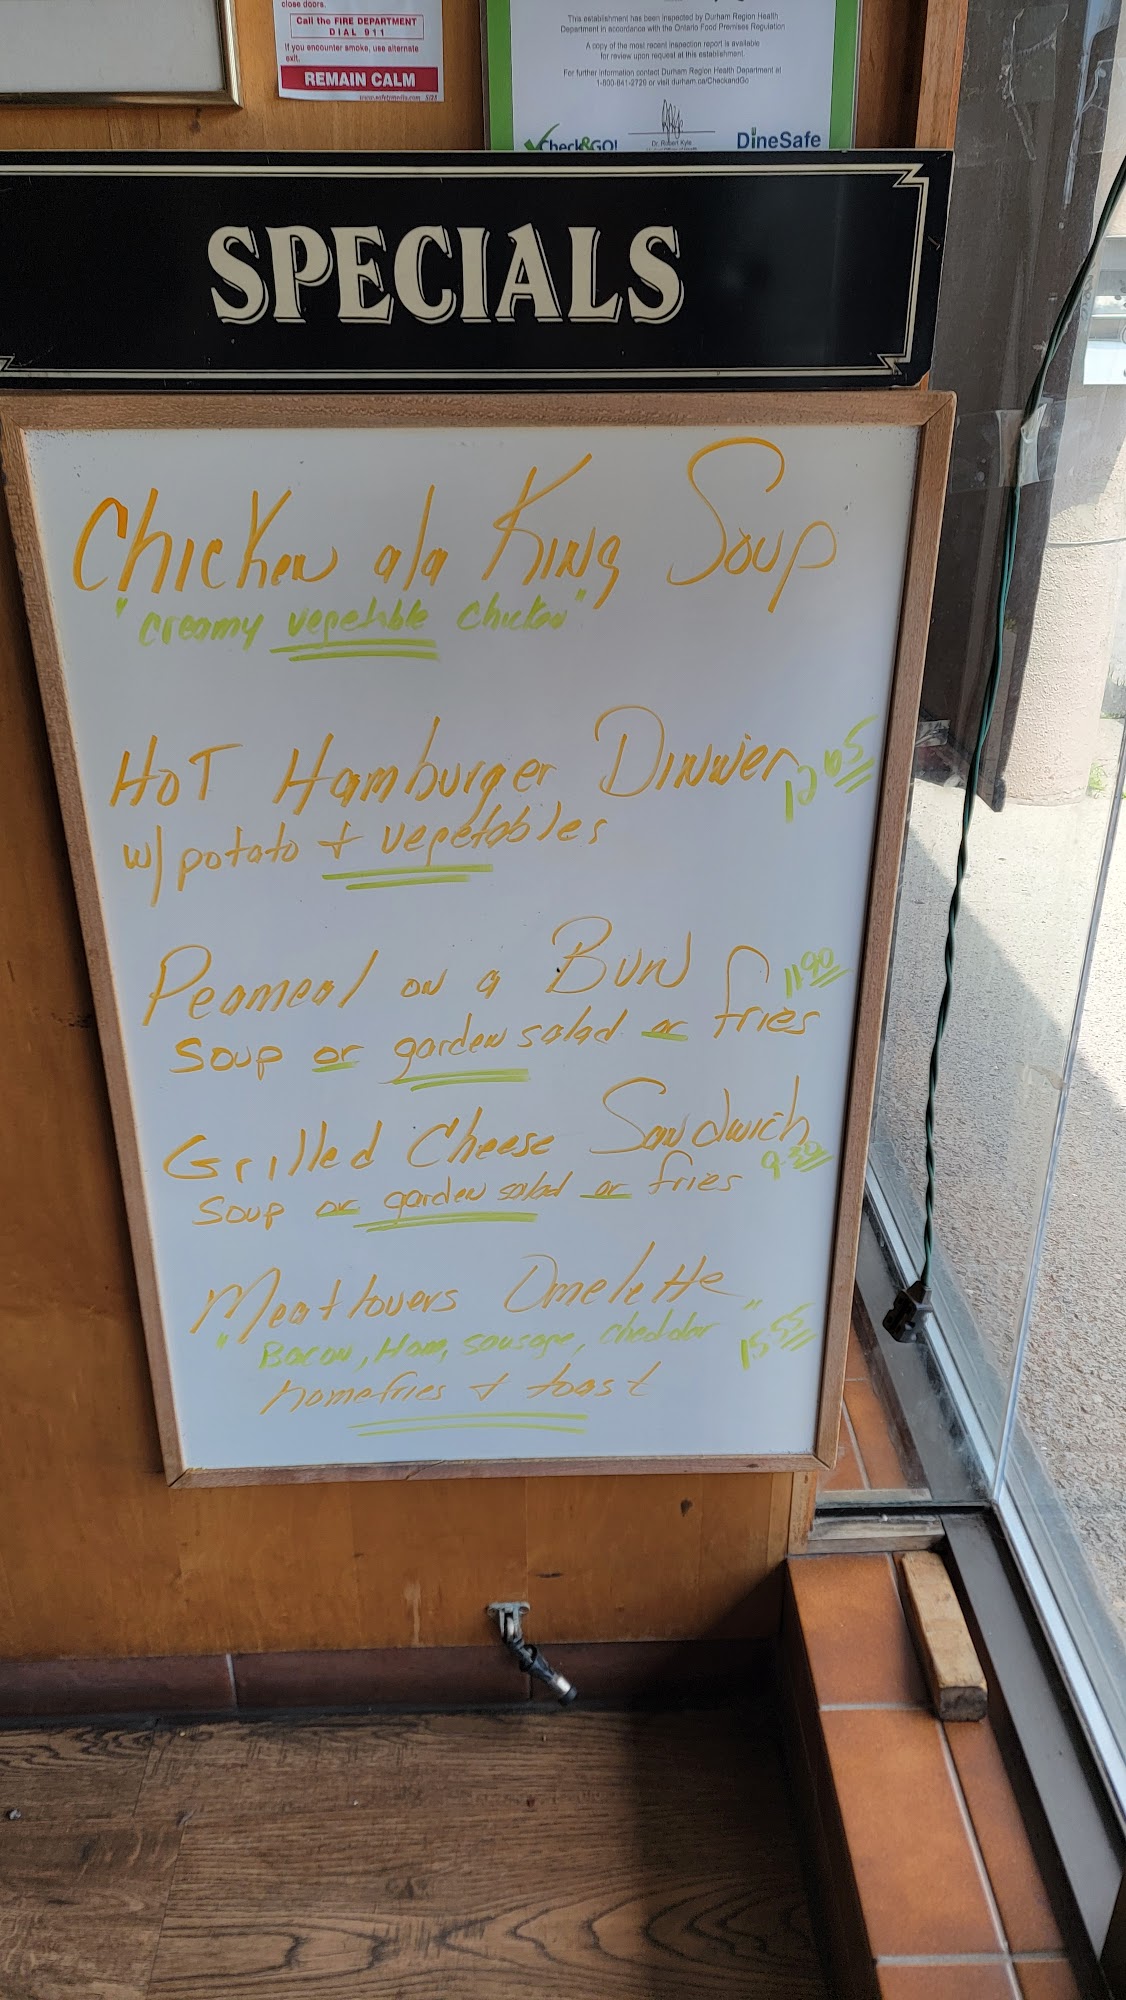 close doors.
Call the FIRE DEPARTMENT
DIAL 911
If you encounter smoke, use alternate
exit.
REMAIN CALM
This establishment has been inspected by Durham Region Health
Department in accordance with the Ontario Food Premises Regulation
A copy of the most recent inspection report is available
for review upon request at this establishment.
For further information contact Durham Region Health Department at
1-800-841-2729 or visit durham.ca/CheckandGo
Check&GO!
Dr. Robert Kyle
DineSafe
SPECIALS
Chicken ala King Soup
"creamy vegetable chicken"
Hot Hamburger Dinner 12.65
w/ potato + vegetables
Peameal on a Bun 11.90
soup or garden salad or fries
Grilled Cheese Sandwich
soup or garden salad or fries 9.30
Meatlovers Omelette
"Bacon, Ham, sausage, cheddar" 15.55
homefries + toast